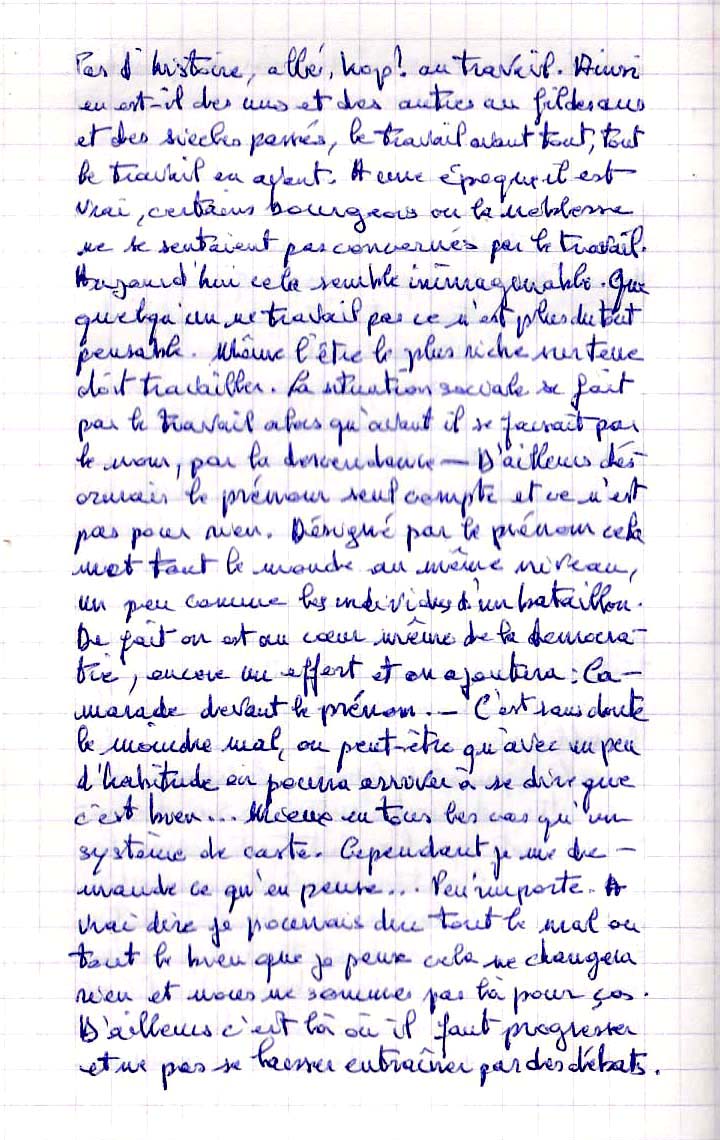 Pas d'histoire, allé, hop! au travail. Ainsi
en est-il des uns et des autres au fil des ans
et des siècles passés, le travail avant tout, tout
le travail en avant. A une époque il est
vrai, certains bourgeois ou la noblesse
ne se sentaient pas concernés par le travail.
Aujourd'hui cela semble inimaginable. Que
quelqu'un ne travail pas ce n'est plus du tout
pensable. Même l'être le plus riche sur terre
doit travailler. La situation sociale se fait
par le travail alors qu'avant il se faisait par
le nom, par la descendance — D'ailleurs dés-
ormais le prénom seul compte et ce n'est
pas pour rien. Désigné par le prénom cela
met tout le monde au même niveau,
un peu comme les individus d'un bataillon.
De fait on est au cœur même de la démocra-
tie, encore un effort et on ajoutera : Ca-
marade devant le prénom. — C'est sans doute
le moindre mal, ou peut-être qu'avec un peu
d'habitude on pourra arriver à se dire que
c'est bien... Mieux en tous les cas qu'un
système de caste. Cependant je me de-
mande ce qu'en pense... Peu importe. A
vrai dire je pourrais dire tout le mal ou
tout le bien que je peux cela ne changera
rien et nous ne sommes pas là pour ças.
D'ailleurs c'est là où il faut progresser
et ne pas se laisser entraîner par des débats.